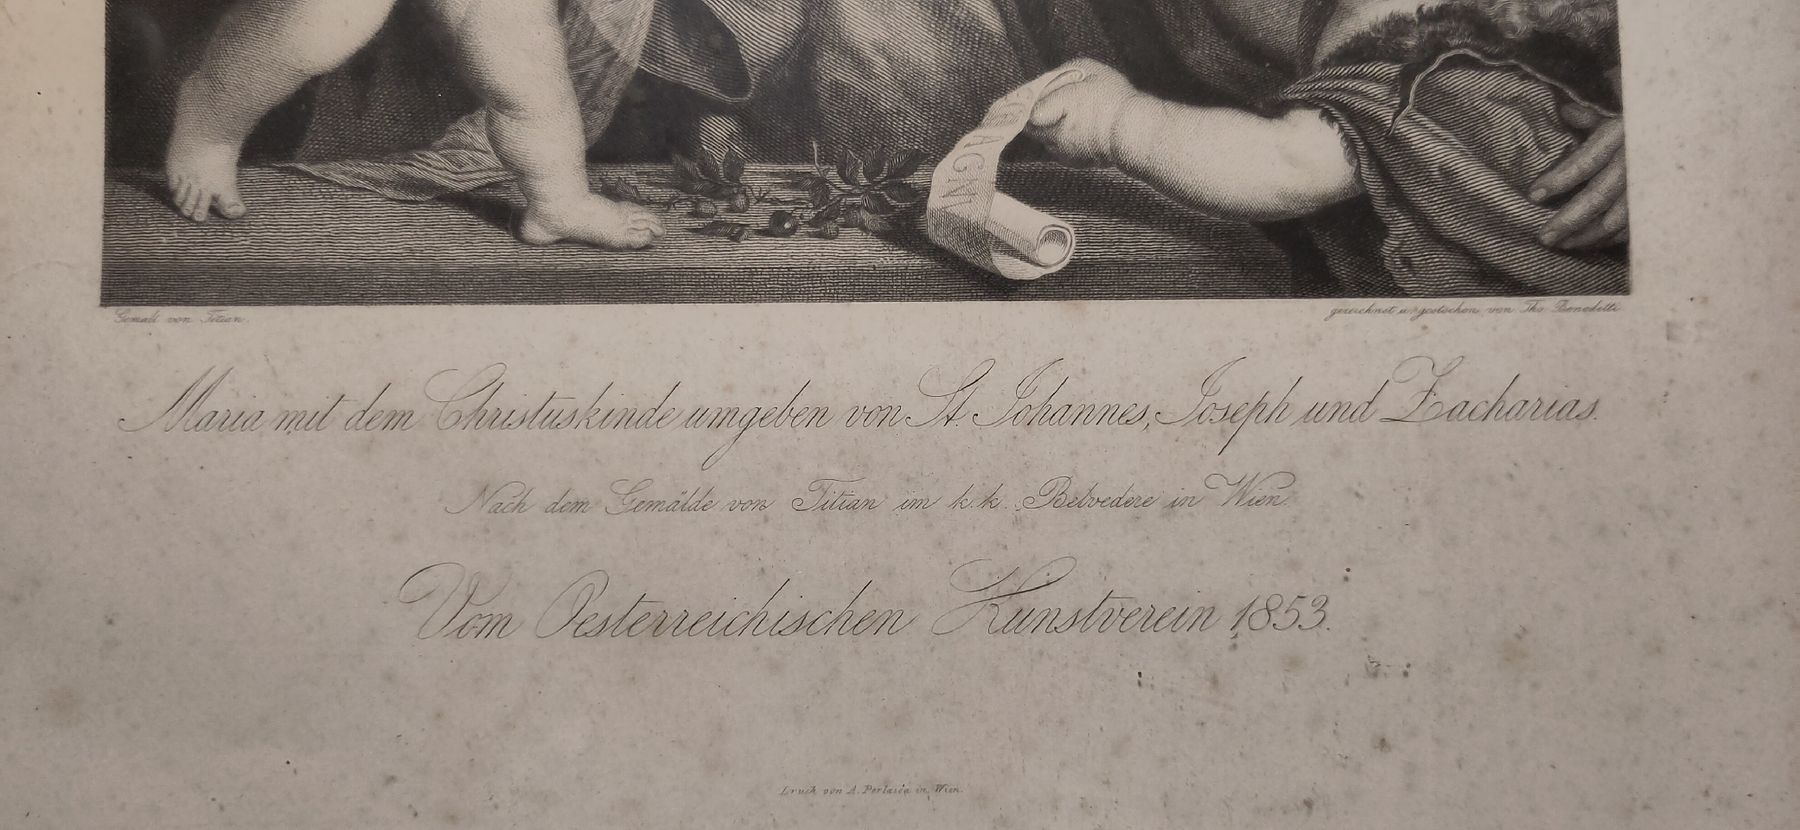 AGNV
Gemalt von Titian.
gezeichnet u. gestochen von Tho. Benedetti
Maria mit dem Christuskinde umgeben von St. Johannes, Joseph und Zacharias.
Nach dem Gemälde von Titian im k.k. Belvedere in Wien.
Vom Oesterreichischen Kunstverein 1853.
Druck von A. Perlasca in Wien.